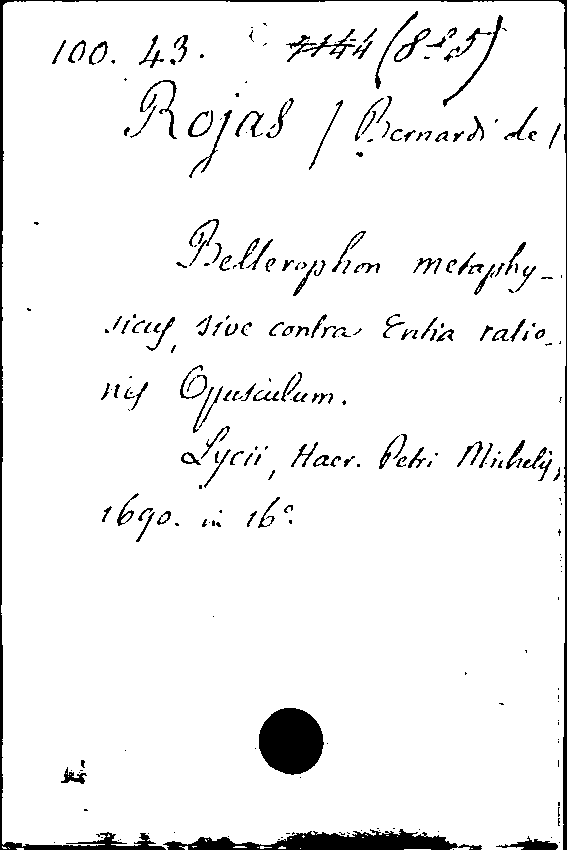 100. 43. (8-25)
Rojas / Bernardi de
Bellerophon metaphy-
sicus, sive contra Entia ratio-
nis Opusculum.
Lycii, Haer. Petri Michelij,
1690. in 16°.